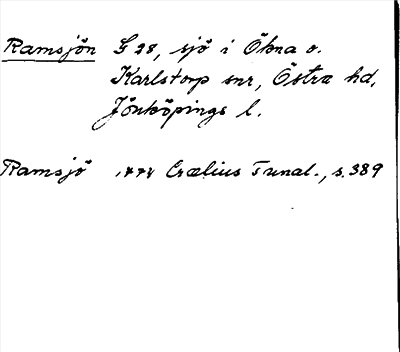 Ramsjön G 28, sjö i Ökna o.
Karlstorp snr, Östra hd,
Jönköpings l.
Ramsjö 1774 Crælius Tunal., s. 389